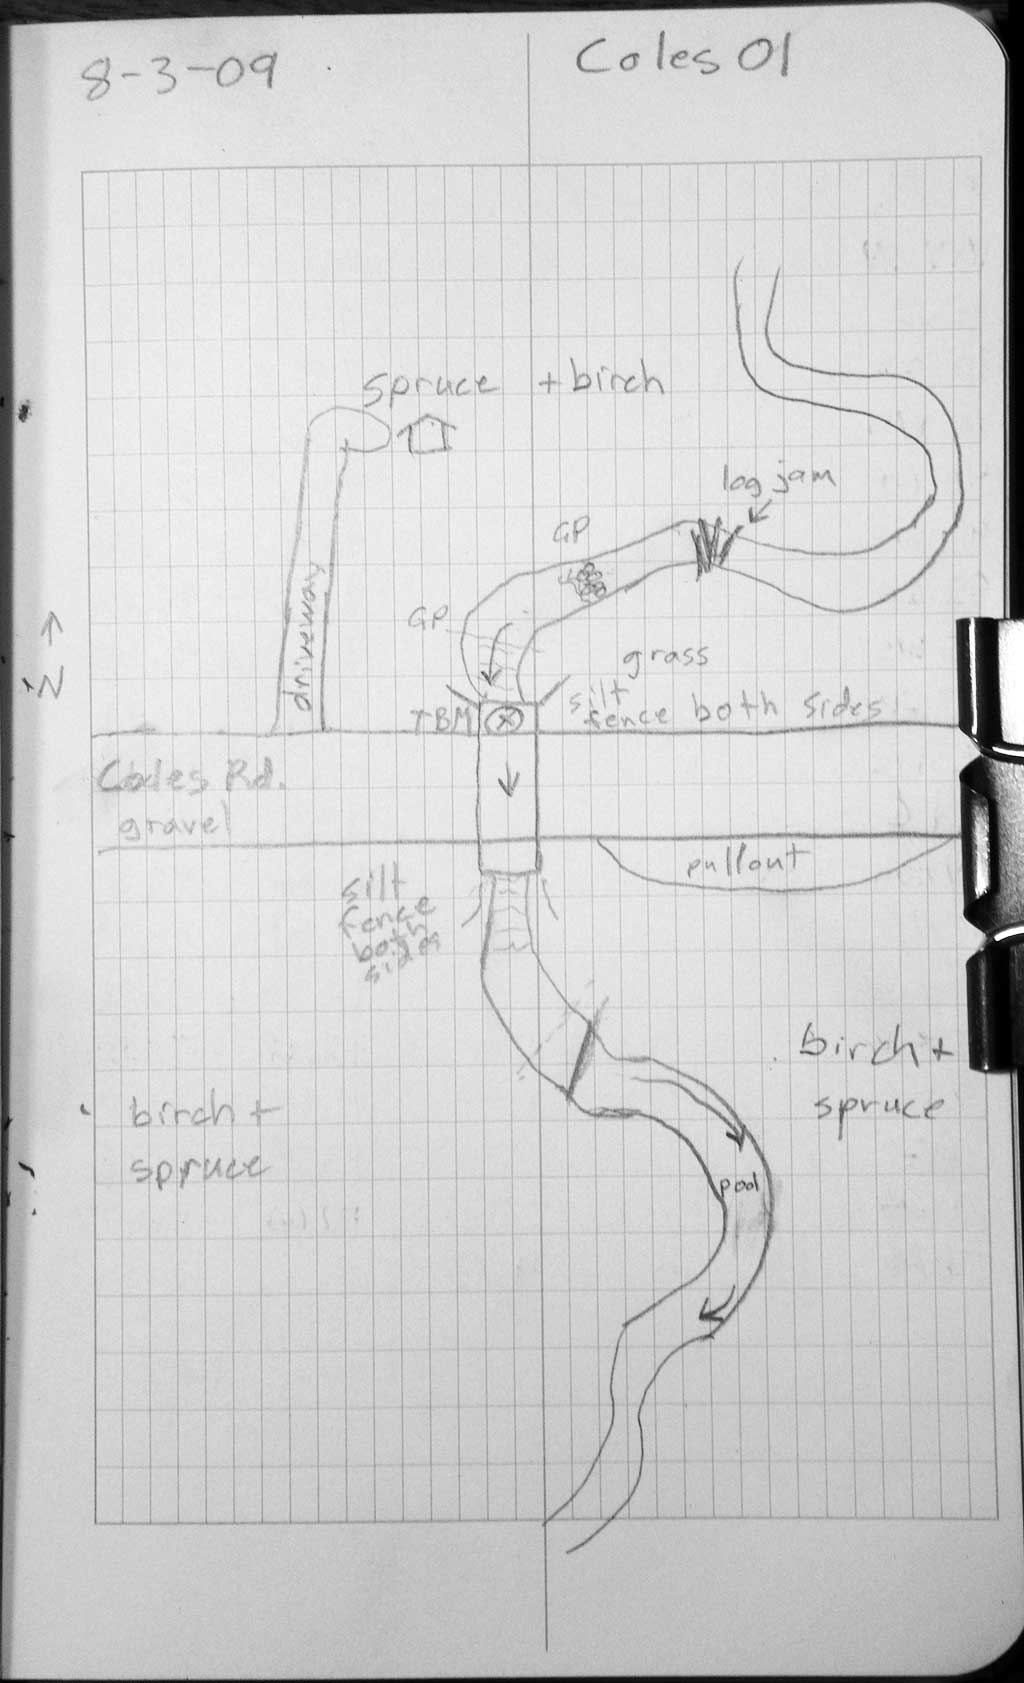 8-3-09
Coles 01
spruce + birch
log jam
GP
GP
driveway
N
grass
silt
fence both sides
TBM
Coles Rd.
gravel
pullout
silt
fence
both
sides
birch +
spruce
pool
birch +
spruce